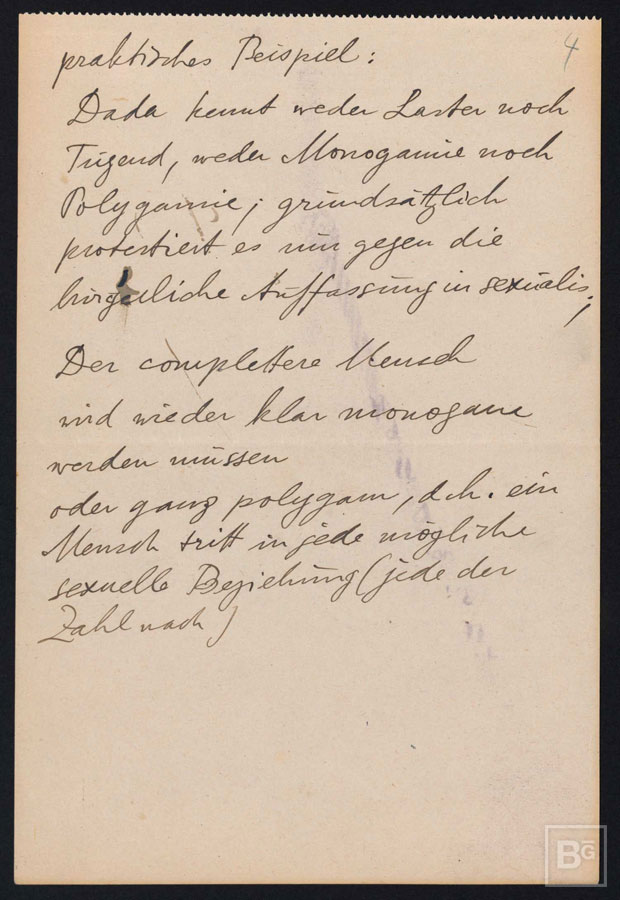 4
praktisches Beispiel:
Dada kennt weder Laster noch
Tugend, weder Monogamie noch
Polygamie; grundsätzlich
protestiert es nur gegen die
bürgerliche Auffassung in sexualis;
Der complettere Mensch
wird wieder klar monogam
werden müssen
oder ganz polygam, d.h. ein
Mensch tritt in jede mögliche
sexuelle Beziehung (jede der
Zahl nach)
BG